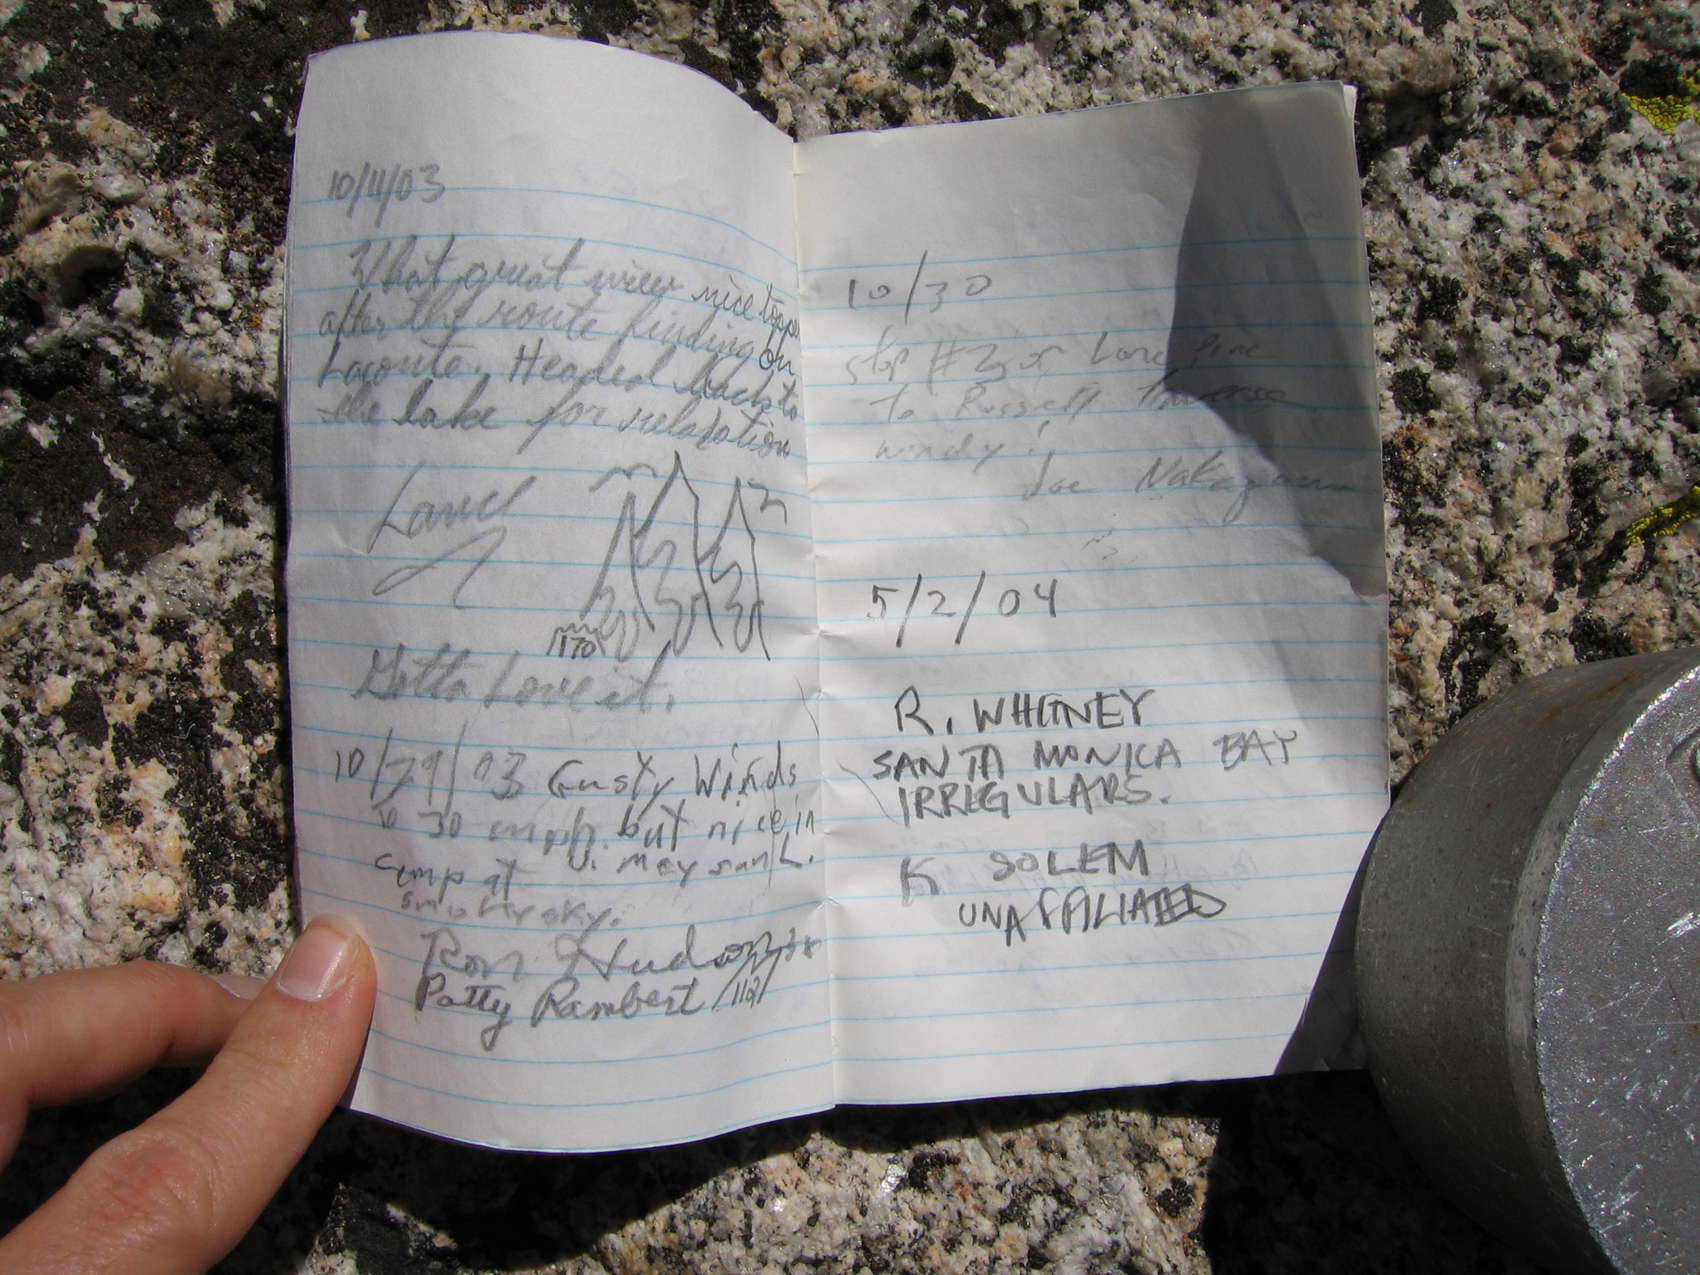 10/4/03
What great view nice topper
after the route finding on
Laconte. Headed back to
the lake for relaxation
Lance
1170
Gotta Love it.
10/29/03 Gusty Winds
to 30 mph. but nice in
camp at
smokey sky.
Ron Hudson
Patty Rambert /112/
10/30
stop #3 of Lone Pine
to Russell traverse
windy!
Joe Nakagawa
5/2/04
R. WHITNEY
SANTA MONICA BAY
IRREGULARS.
K SOLEM
UNAFFILIATED